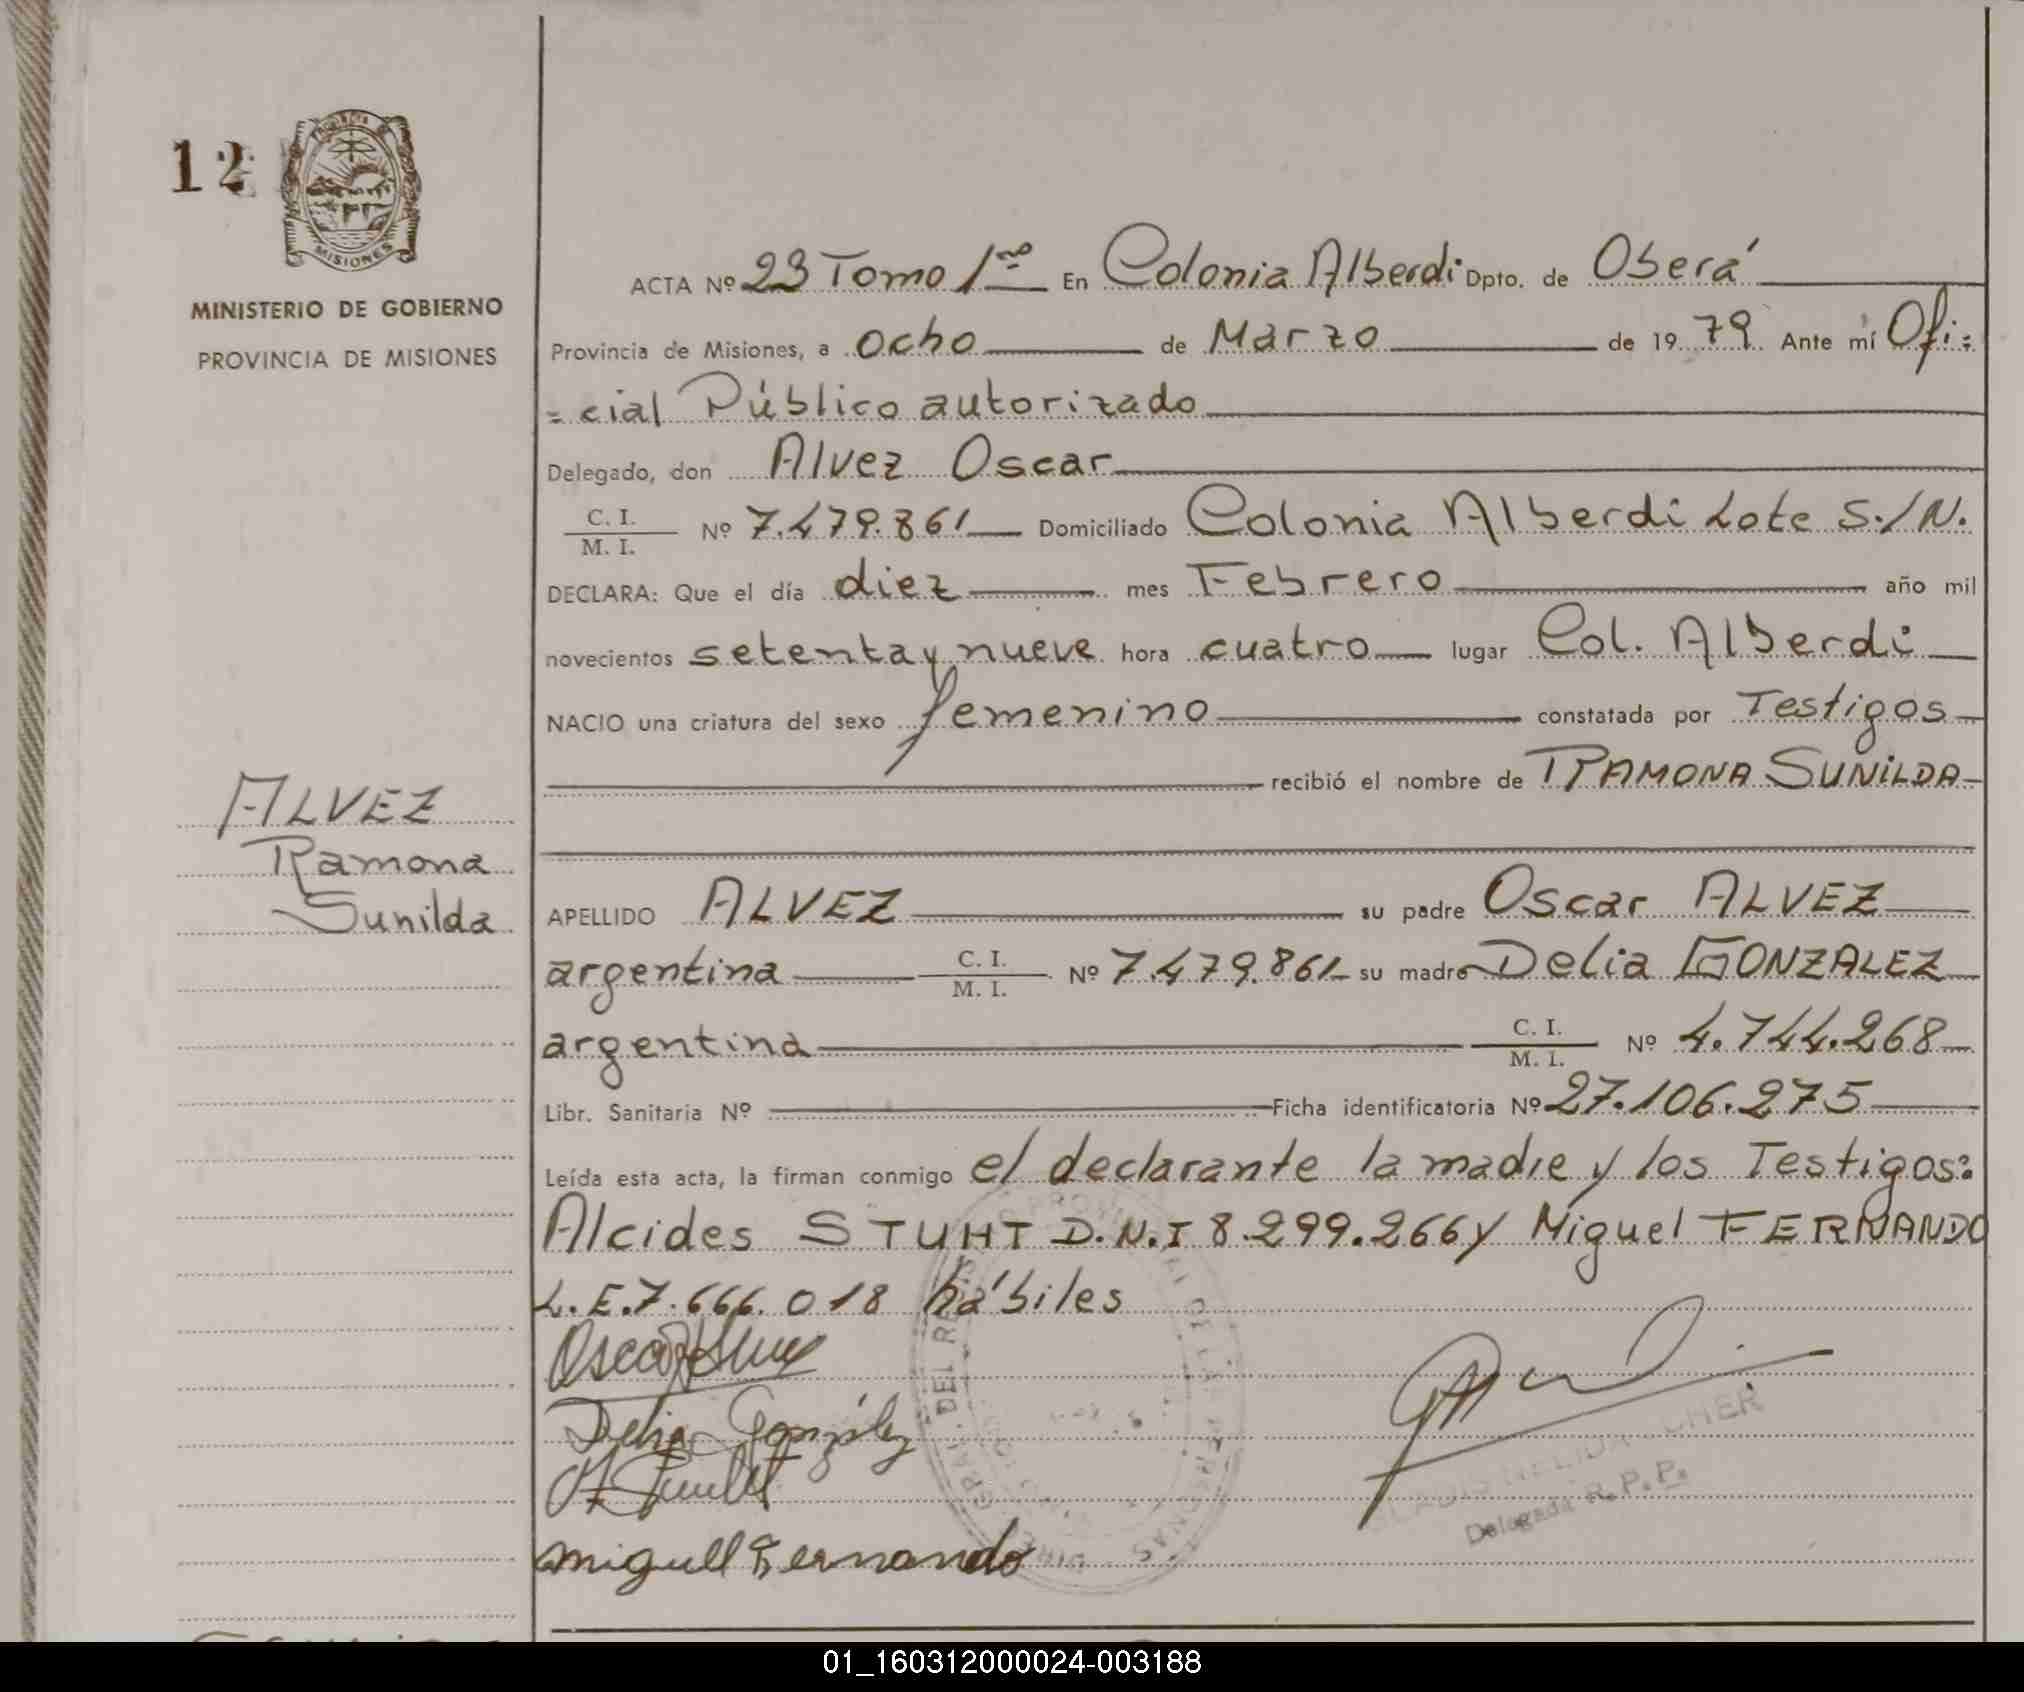 12
PROVINCIA DE
MISIONES
MINISTERIO DE GOBIERNO
PROVINCIA DE MISIONES
ACTA Nº 23 Tomo 1ro En Colonia Alberdi Dpto. de Oberá
Provincia de Misiones, a ocho de Marzo de 1979 Ante mí Ofi=
=cial Público autorizado
Delegado, don Alvez Oscar
C. I.
M. I.
Nº 7.479.861 Domiciliado Colonia Alberdi Lote S./N.
DECLARA: Que el día diez mes Febrero año mil
novecientos setenta y nueve hora cuatro lugar Col. Alberdi
NACIO una criatura del sexo femenino constatada por Testigos
recibió el nombre de RAMONA SUNILDA
ALVEZ
Ramona
Sunilda
APELLIDO ALVEZ su padre Oscar ALVEZ
argentina C. I. M. I. Nº 7.479.861 su madre Delia GONZALEZ
argentina C. I. M. I. Nº 4.744.268
Libr. Sanitaria Nº Ficha identificatoria Nº 27.106.275
Leída esta acta, la firman conmigo el declarante la madre y los Testigos:
Alcides STUHT D.N.I 8.299.266 y Miguel FERNANDO
L.E.7.666.018 hábiles
Oscar Alvez
Delia González
Miguel Fernando
Delegada R.P.P.
01_160312000024-003188